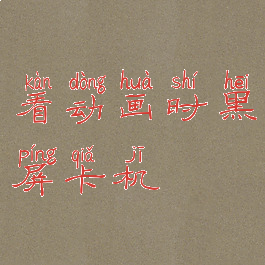 kàn dòng huà shí hēi
看动画时黑
píng qiǎ jī
屏卡机